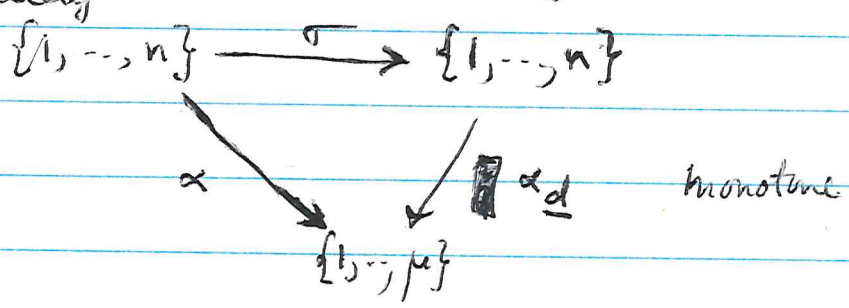 {1, --, n} σ {1, --, n}
α α_d monotone
{1, --, μ}